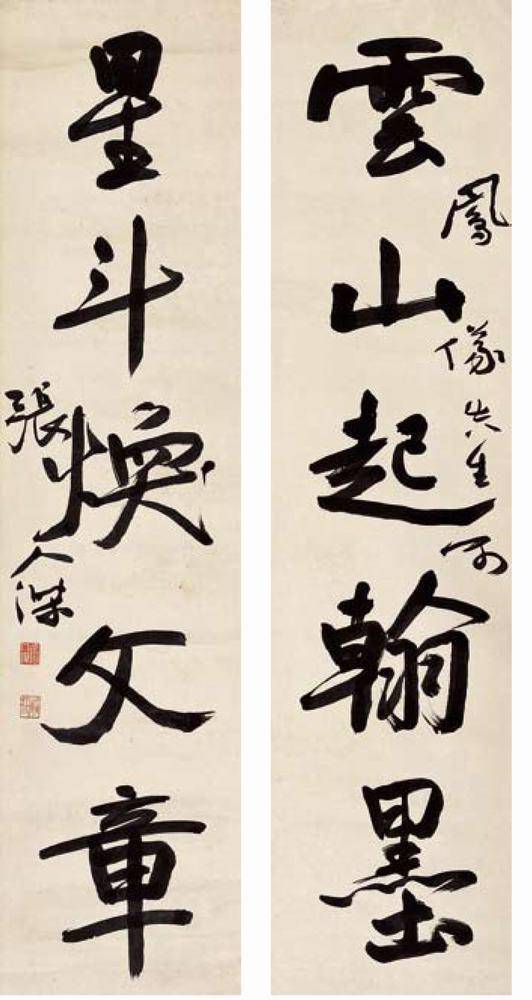 雲山起翰墨
鳳儀先生
星斗煥文章
張人傑